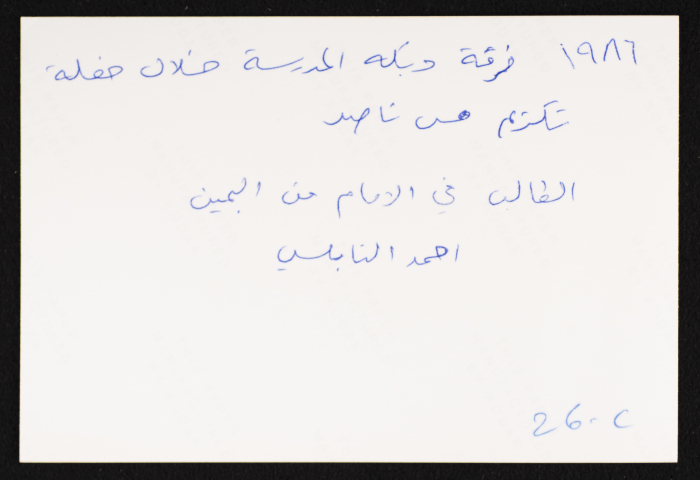 ١٩٨٦ فرقة دبكه المدرسة خلال حفلة
تكريم مس ناصر
الطالب في الامام من اليمين
احمد النابلسي
26.c